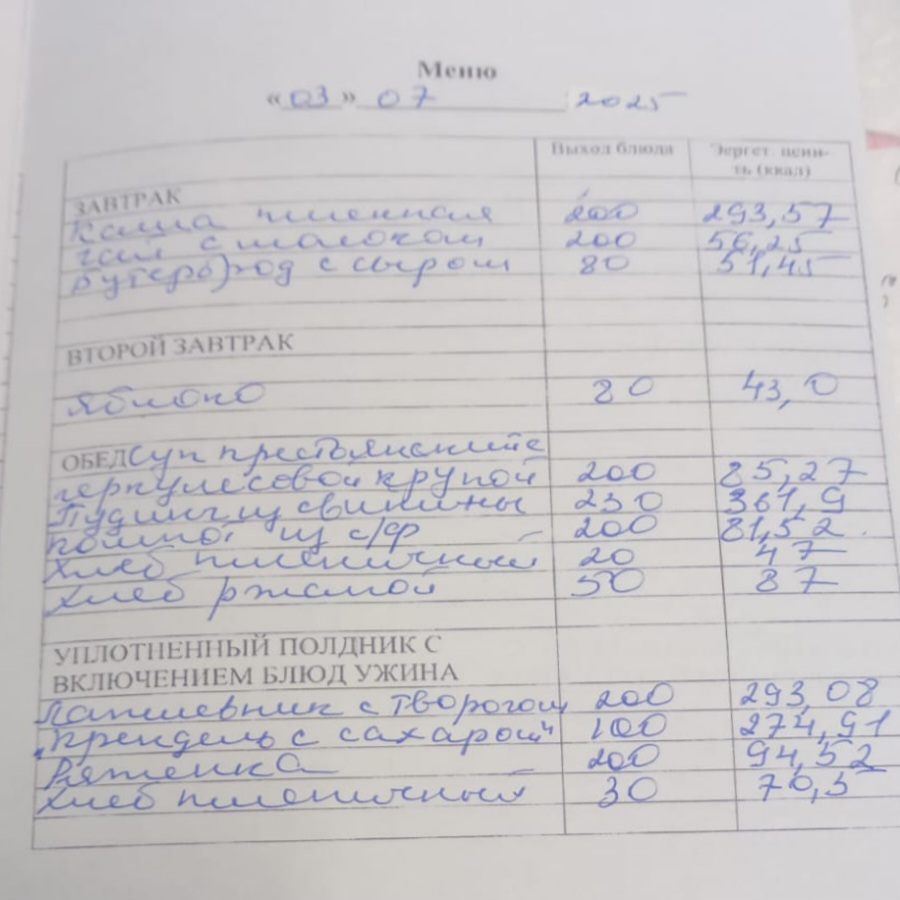 Меню
«03» 07 2025
Выход блюда Энергет. ценн-ть (ккал)
ЗАВТРАК
Каша пшенная 200 293,57
чай с молоком 200 56,25
бутерброд с сыром 80 51,45
ВТОРОЙ ЗАВТРАК
яблоко 80 43,0
ОБЕД Суп крестьянский с
геркулесовой крупой 200 85,27
Пудинг из свинины 230 361,9
компот из с/ф 200 81,52
хлеб пшеничный 20 47
хлеб ржаной 50 87
УПЛОТНЕННЫЙ ПОЛДНИК С
ВКЛЮЧЕНИЕМ БЛЮД УЖИНА
Лапшевник с творогом 200 293,08
„Крендель с сахаром" 100 274,91
Ряженка 200 94,52
хлеб пшеничный 30 70,5